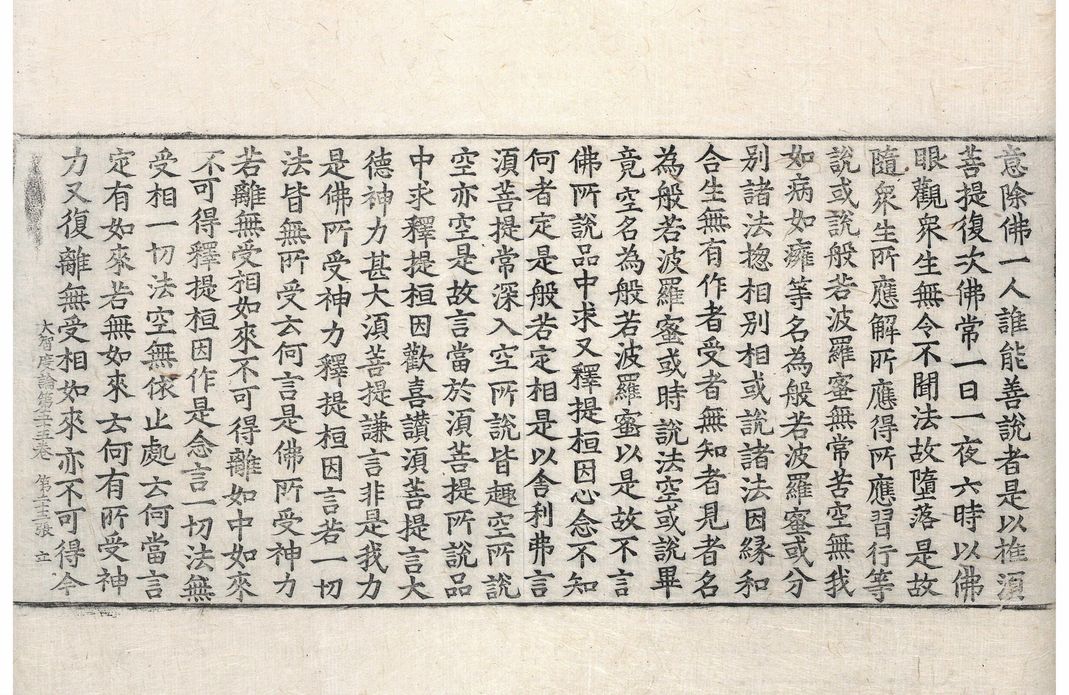 意除佛一人誰能善說者是以推湏
菩提復次佛常一日一夜六時以佛
眼觀衆生無令不聞法故墮落是故
隨衆生所應解所應得所應習行等
說或說般若波羅蜜無常苦空無我
如病如癰等名為般若波羅蜜或分
別諸法惣相別相或說諸法因緣和
合生無有作者受者無知者見者名
為般若波羅蜜或時說法空或說畢
竟空名為般若波羅蜜以是故不言
佛所說品中求又釋提桓因心念不知
何者定是般若定相是以舍利弗言
湏菩提常深入空所說皆趣空所說
空亦空是故言當於湏菩提所說品
中求釋提桓因歡喜讚湏菩提言大
德神力甚大湏菩提謙言非是我力
是佛所受神力釋提桓因言若一切
法皆無所受云何言是佛所受神力
若離無受相如來不可得離如中如來
不可得釋提桓因作是念言一切法無
受相一切法空無依止處云何當言
定有如來若無如來云何有所受神
力又復離無受相如來亦不可得今
大智度論第五十五卷 第張 立